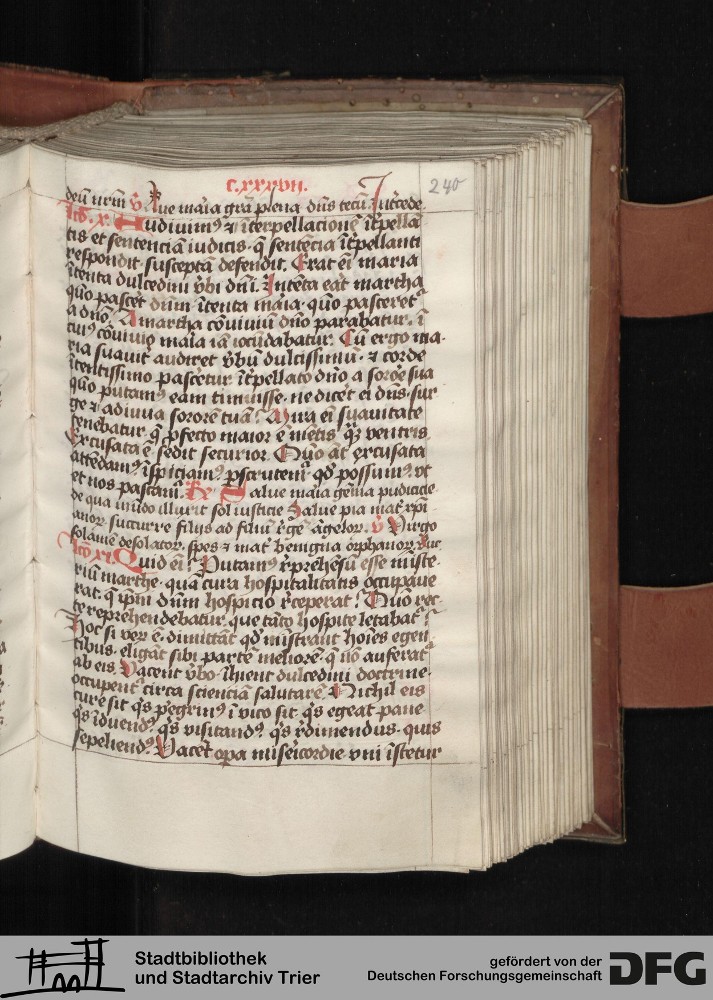 c.xxxvii.
240
deū nrm̄ v̄ Aue maīa grā plena dn̄s tecū. Intͨcede
lcō. x. Audiuimꝯ ⁊ īterpellacionē īt̄pellā
tis et sentenciā iudicis. q̄ sentēcia īt̄pellanti
respondit. susceptā defendit. Erat eī maria
ītenta dulcedini v̄bi dn̄i. Intēta eāt martha
quō pascet̄ dūm. ītenta maīa. quō pasceret̄
a dn̄o. A martha cōuiuiū dn̄o parabatur. ī
cuiꝯ cōuiuio maīa iā iocūdabatur. Cū ergo ma-
ria suauit̄ audiret v̄bū dulcissimū. ⁊ corde
ītentissimo pascetur. īt̄pellato dn̄o a sorōe sua
quō putamꝯ eam timuisse. ne dicet̄ ei dn̄s. sur
ge ⁊ adiuua sororē tuā? Mira eī suauitate
tenebatur. q̄ ꝓfecto maior ē mētis qꝫ ventris
Excusata ē. sedit securior. Quō āt excusata
attēdamꝯ. īspiciamꝯ. ꝑscrutem̄. qd̄ possumꝯ. vt
et nos pascam̄. Rͤ Salue maīa gēma pudicicie
de qua mūdo illuxit sol iusticie Salue pia mat̄ xp̄i
succurre filijs ad filiū r̄gē āgelor. v̄ Virgo
solamē desolator. spes ⁊ mat̄ benigna orphanor. Sue
lcō xi. Quid eī? Putamꝯ r̄prehēsū esse miste-
riū marthe. quā cura hospitalitatis occupaue
rat. q̄ ip̄m dn̄m hospicio r̄ceperat? Quō rec-
te reprehendebatur. que tāto hospite letabat̄?
Hoc si ver̄ ē. dimittāt qd̄ mīstrant hoīes egen
tibus. eligāt sibi partē meliorē. q̄ nō auferat̄
ab eis. Vacent v̄bo. īhient dulcedini doctrine.
occupent̄ circa scienciā salutarē. Nichil eis
cure sit q̄s pegrinꝯ ī vico sit. q̄s egeat pane
q̄s īduendꝯ. q̄s visitandꝯ. q̄s r̄dimendus. quis
sepeliendꝯ. Vacēt oꝑa misericordie. vni īstetur
Stadtbibliothek
und Stadtarchiv Trier
gefördert von der
Deutschen Forschungsgemeinschaft
DFG